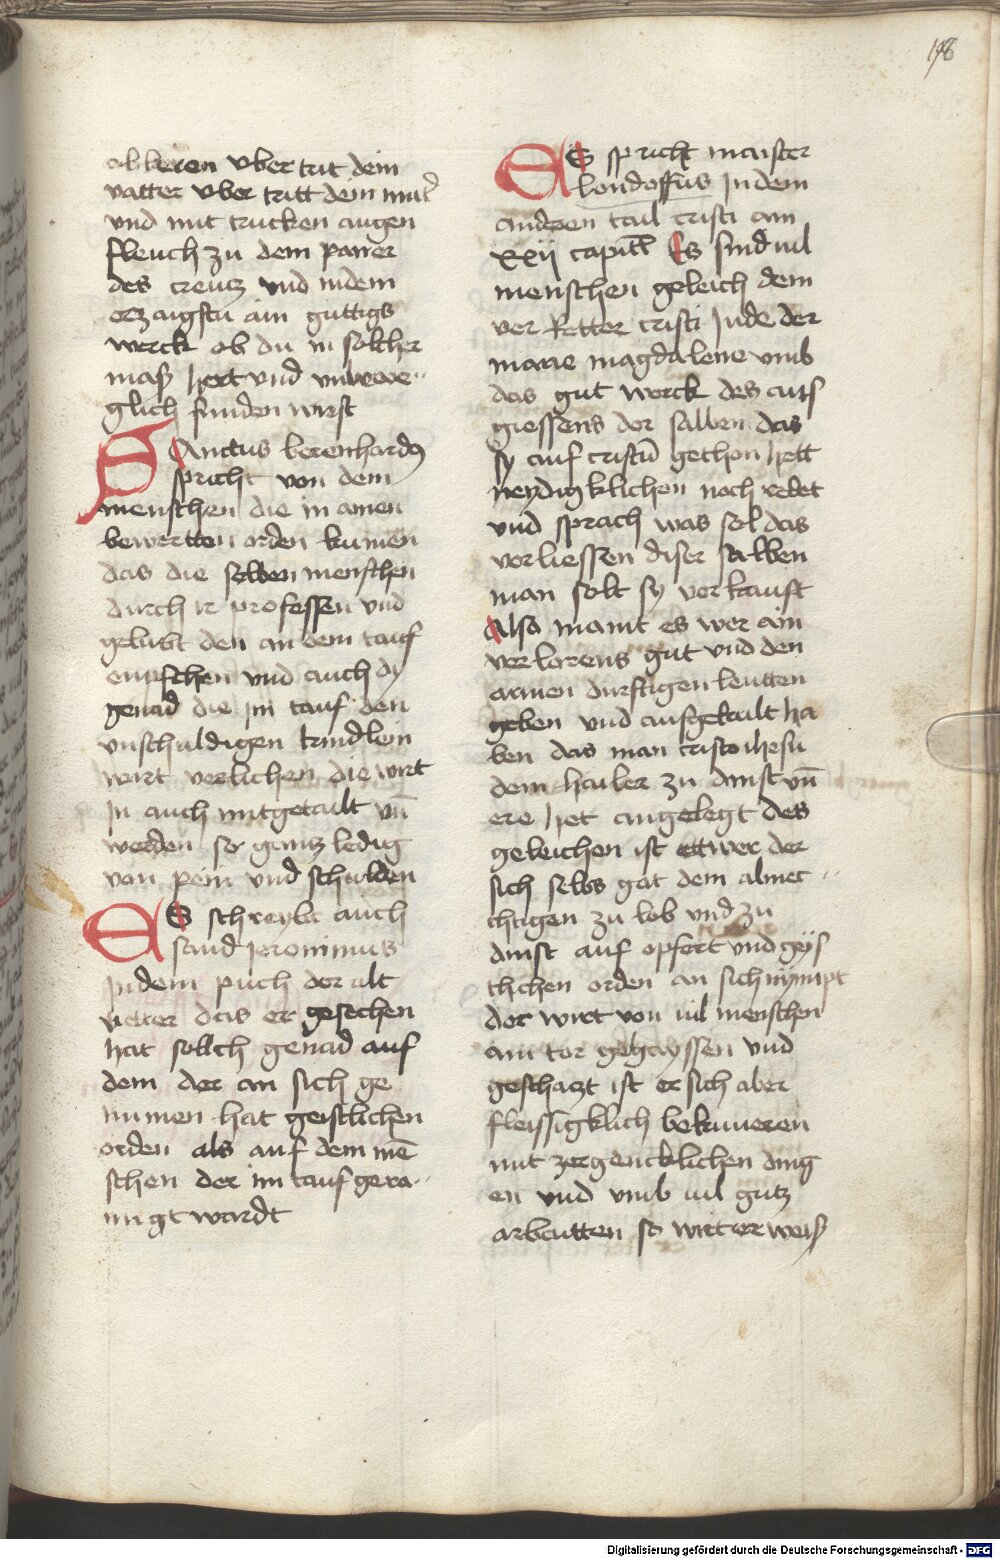 198
ob keren vber trit dein
vatter vber tritt dein mut̄
vnd mit trucken augen
fleuch zu dem paner
des creutz vnd indem
erzaigstu ain guttigs
werck ob du in solcher
masz hert vnd vnwere¬
glich funden wirst
SAnctus berenhardus
spricht von dem
menschen die in ainen
bewertten orden kumen
das die selben menschen
durch ir professen vnd
gelubt den an dem tauf
enpfchen vnd auch dy
genad die im tauf den
vnschuldigen kindlein
wirt verlichen die wirt
In auch mitgetailt vn̄
werden so gantz ledig
von pein vnd schulden
ES schreybt auch
sand Jeronimus
Indem puch der alt
veter das er gesechen
hat sollch genad auf
dem der an sich ge
numen hat geistlichen
orden als auf dem mē
schen der im tauf gera¬
nigt wardt
ES spricht maister
londolffus Indem
anderen tail cristi am
xxij capitl Es sind uil
menschen geleich dem
ver Retter cristi Jude der
marie magdalene vmb
das gut werck des ausz
giessens der salben das
sy auf cristū gethon hett
neydigklichen noch redet
vnd sprach was sol das
verliessen diser salben
man solt sy verkauft
Also maint es wer ain
verlorens gut vnd den
armen durftigen leutten
geben vnd ausgetailt ha
ben das man cristo ihesu
dem hailer zu dinst vn̄
ere het angelegt des
geleichen ist ettwer der
sich selbs gāt dem almec¬
thigen zu lob vnd zu
dinst auf opfert vnd geys
tlichen orden an sich nympt
der wirt von uil menschen
ain tor gehayssen vnd
geschatzt ist er sich aber
fleissigklich bekumeren
mit zergencklichen ding
en vnd vmb uil gutz
arbeitten so wirt er weisz
Digitalisierung gefördert durch die Deutsche Forschungsgemeinschaft - DFG